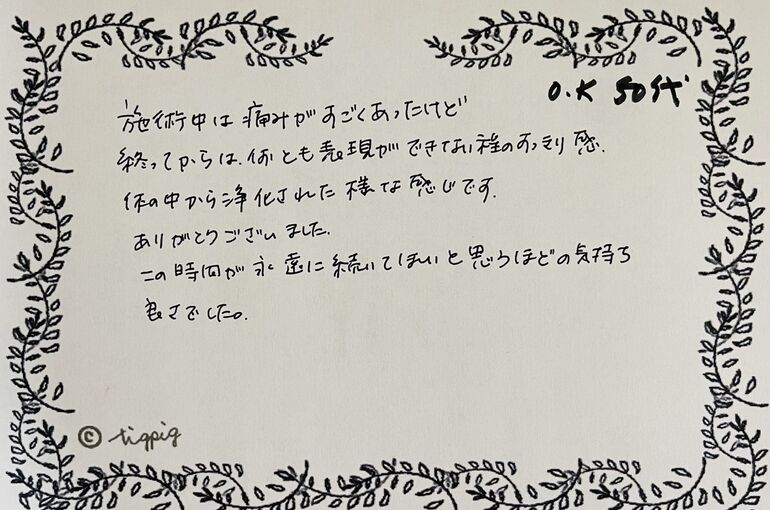 O.K 50代
施術中は痛みがすごくあったけど
終ってからは、何とも表現ができない程のすっきり感。
体の中から浄化された様な感じです。
ありがとうございました。
この時間が永遠に続いてほしいと思うほどの気持ち
良さでした。
© tigpig